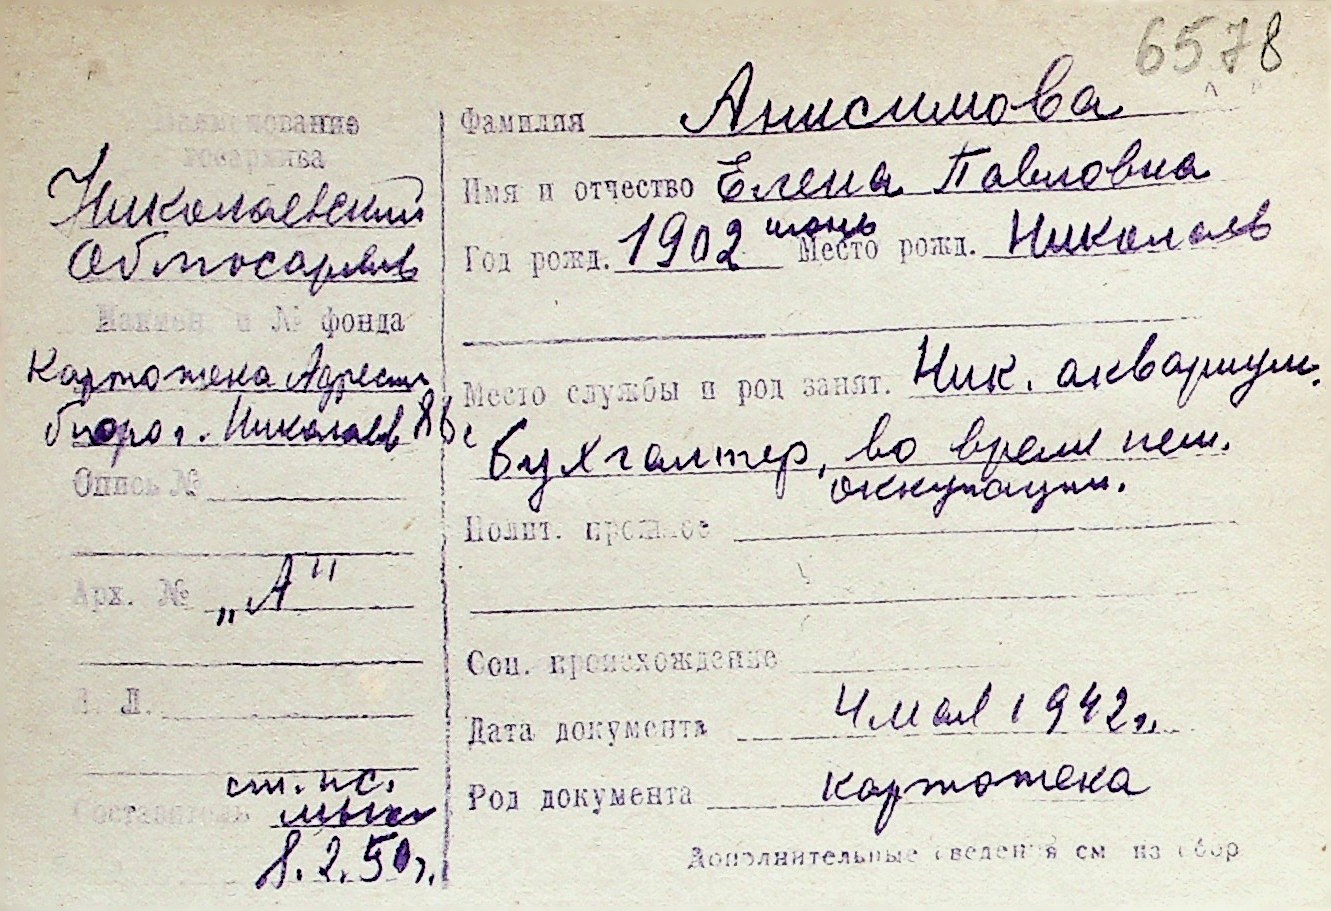 6578
Наименование
госархива
Николаевский
Облгосархив
Наимен. и № фонда
Картотека Адресн.
бюро г. Николаев
Опись №
Арх. № „А"
Л. Л.
ст. н.с.
Составитель
8.2.50г.
Фамилия Анисимова
Имя и отчество Елена Павловна
Год рожд. 1902 июнь Место рожд. Николаев
Место службы и род занят. Ник. аквариум.
бухгалтер, во время нем.
оккупации.
Полит. прошлое
Соц. происхождение
Дата документа 4 мая 1942г.
Род документа картотека
Дополнительные сведения см на обор